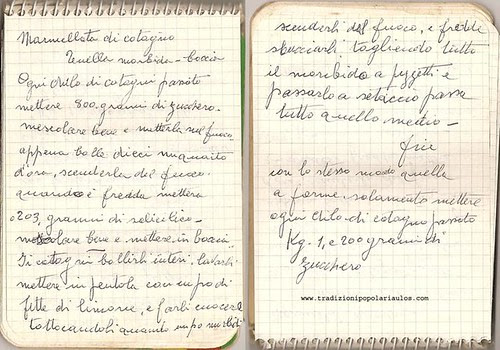 Marmellata di cotagno
Quella morbida - boccia
Ogni chilo di cotagni passato
mettere 800 grammi di zucchero -
mescolare bene e metterla sul fuoco
appena bolle dieci minuti
d'ora, scenderla del fuoco
quando è fredda mettere
o 203, grammi di salicilico -
mescolare bene e mettere in bocci
I cotogni bollirli interi, lavarli
mettere in pentola con un po di
fette di limone, e farli cuocere
toccandoli quando un po morbidi
scenderli del fuoco, e freddi
sbucciarli tagliendo tutto
il morbido a pezzetti e
passarlo a setaccio passa
tutto quello
fine
con lo stesso modo quella
a forme, solamente mettere
ogni chilo di cotagno passato
Kg. 1, e 200 grammi di
zucchero
www.tradizionipopolariaulos.com